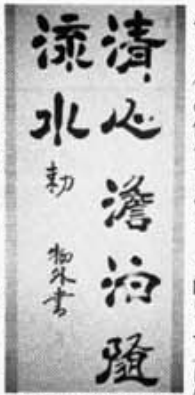 清心澹泊隨
流水
勅 物外書